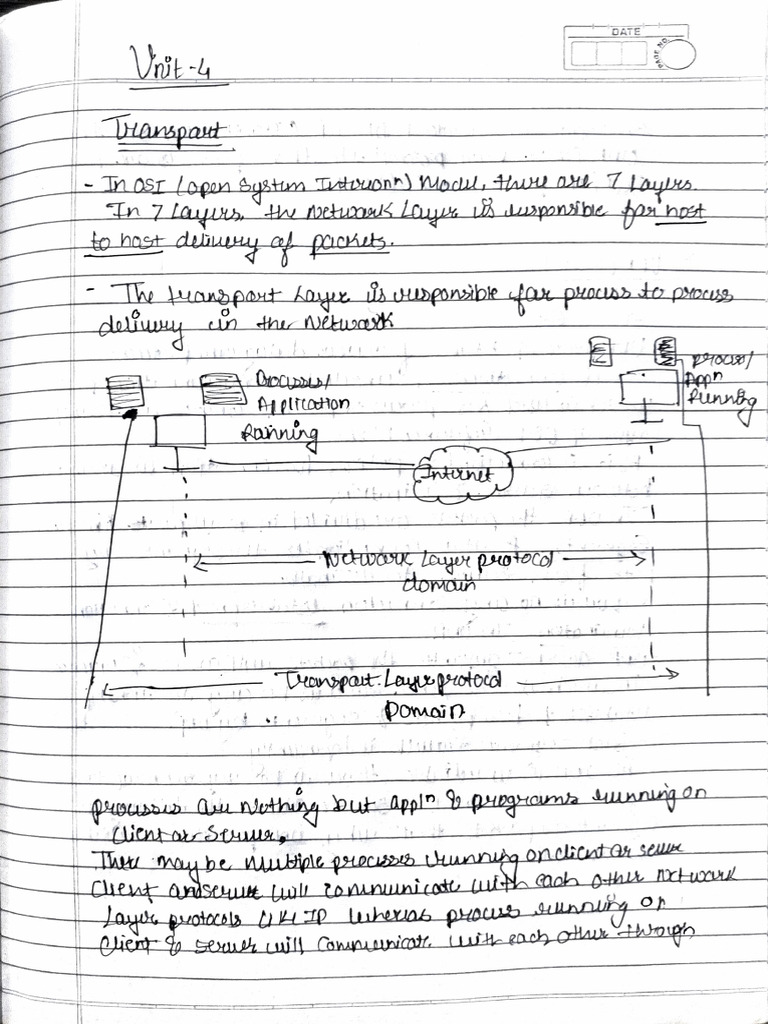 DATE
PAGE NO.
Unit-4
Transport
- In OSI (open System Interconⁿ) Model, there are 7 Layers.
In 7 Layers, the Network Layer is responsible for host
to host delivery of packets.
- The transport Layer is responsible for process to process
delivery in the Network
Processes/
Application
Running
process/
Appⁿ
Running
Internet
Network Layer protocol
domain
Transport Layer protocol
Domain
processes are Nothing but applⁿ & programs running on
client or Server,
There may be multiple processes running on client or server
Client and server will communicate with each other network
Layer protocols like IP whereas process running on
client & server will communicate with each other through